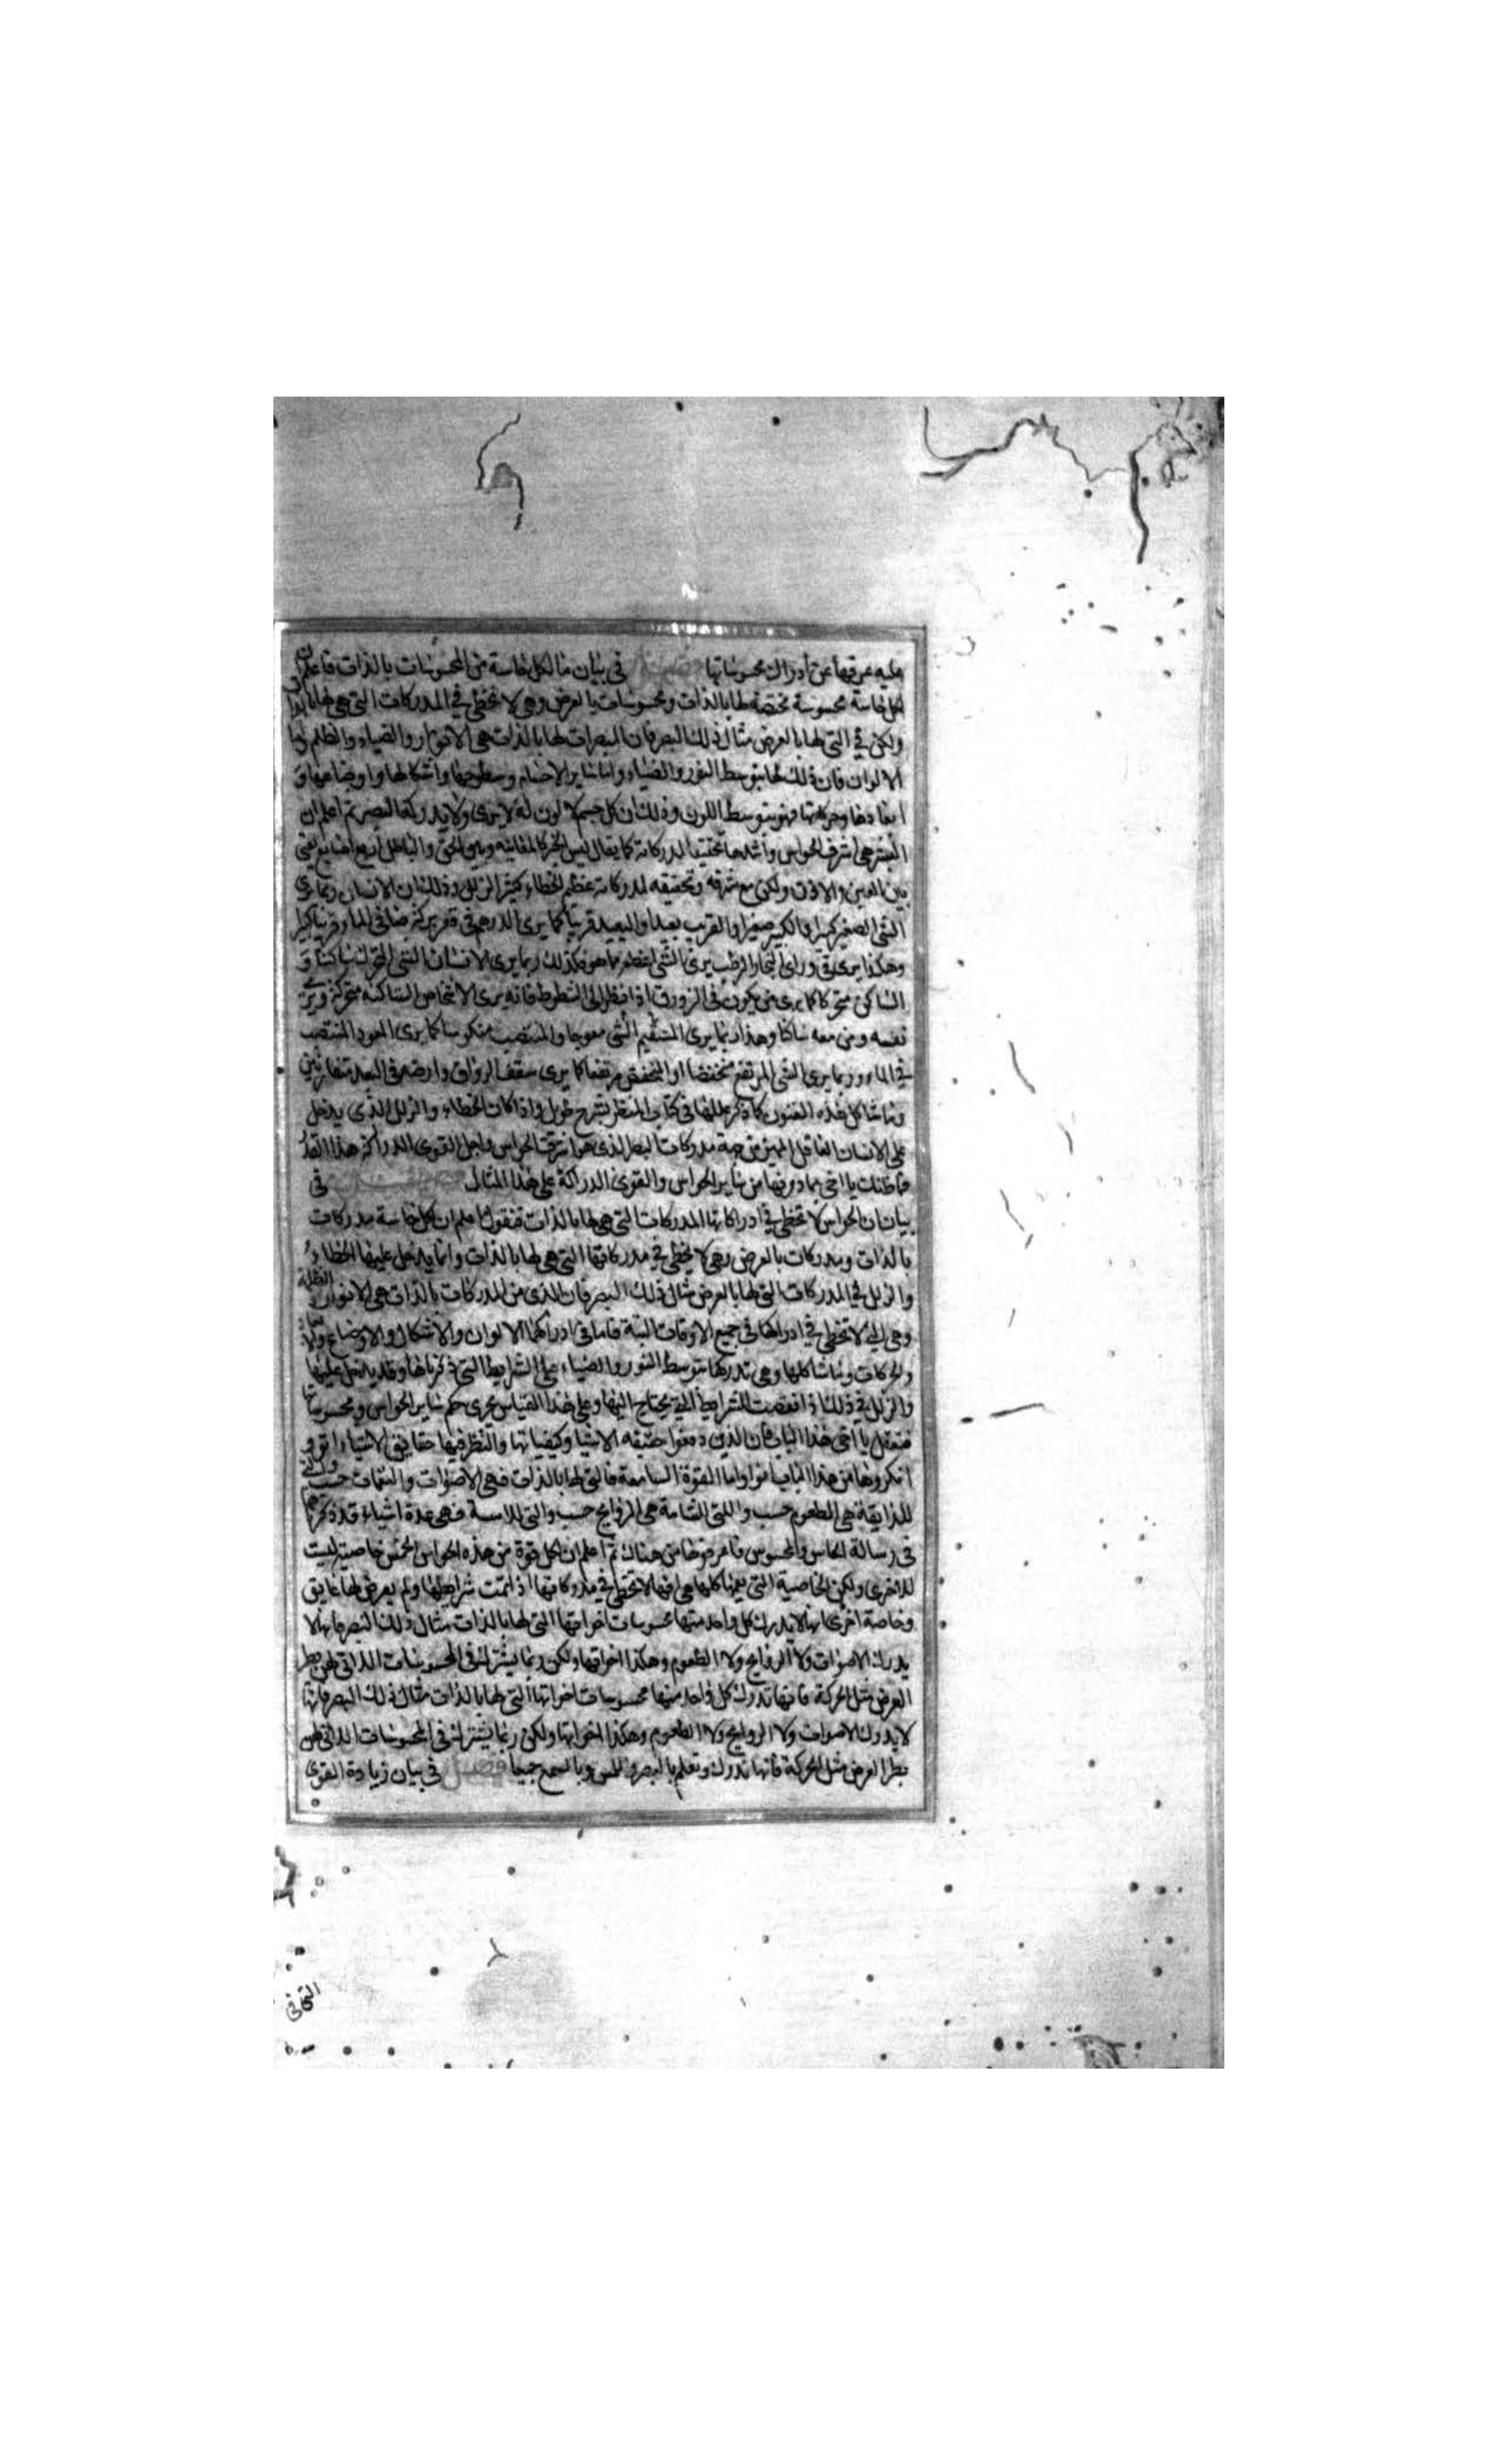 عليه عرفها عن ادراك محسوساتها فصل في بيان ما لكل حاسة من المحسوسات بالذات فاعلم ان
لكل حاسة محسوسة مختصة لها بالذات ومحسوسات بالعرض وهي لا تخطي في المدركات التي هي لها بالذات
ولكن في التي لها بالعرض مثال ذلك البصر فان المبصرات لها بالذات هي الانوار والضياء والظلم
الالوان فان ذلك لها بتوسط النور والضياء واما ساير الاجسام وسطوحها واشكالها واوضاعها و
ابعادها وحركاتها فهو بتوسط اللون وذلك ان كل جسم لا لون له لا يرى ولا يدركه البصر ثم اعلم ان
البصر هي اشرف الحواس واشدها تحقيقا لمدركاته كما يقال ليس الخبر كالمعاينه وبين الحق والباطل اربع اصابع يعني
بين العين والاذن ولكن مع شرفه وتحقيقه لمدركاته عظم الخطاء كثير الزلل وذلك ان الانسان ربما يرى
الشي الصغير كبيرا والكبير صغيرا والقريب بعيدا والبعيد قريبا كما يرى الدرهم في قعر بركة صافي الماء قريبا كبيرا
وهكذا يرى في وراى البخار الرطب يرى الشي اعظم مما هو وكذلك ربما يرى الانسان الشي المتحرك ساكنا و
الساكن متحركا كما يرى من يكون في الزورق اذا نظر الى الشطوط فانه يرى الاشخاص الساكنه متحركة ويرى
نفسه ومن معه ساكنا وهذا ربما يرى المستقيم الشي معوجا والمنتصب منكوسا كما يرى العود المنتصب
في الماء وربما يرى الشي المرتفع منخفضا او المنخفض مرتفعا كما يرى سقف الرواق وارضه في البعد متقاربين
وما شاكل هذه الفنون كما ذكر عللها في كتاب المناظر بشرح طويل واذا كان الخطاء والزلل الذي يدخل
على الانسان العاقل المميز من جهة مدركات البصر الذي هو اشرف الحواس واجل القوى الدراكة هذا القدر
فما ظنك يا اخي بما دونها من ساير الحواس والقوى الدراكة على هذا المثال فصل في
بيان ان الحواس لا تخطي في ادراكاتها المدركات التي هي لها بالذات فنقول اعلم ان لكل حاسة مدركات
بالذات ومدركات بالعرض وهي لا يخطي في مدركاتها التي هي لها بالذات وانما يدخل عليها الخطاء
والزلل في المدركات التي لها بالعرض مثال ذلك البصر فان الذي من المدركات بالذات هي الانوار والظلمة
وهي التي لا تخطي في ادراكها في جميع الاوقات البتة فاما في ادراكها الالوان والاشكال والاوضاع
والحركات وما شاكلها وهي تدركها بتوسط النور والضياء على الشرايط التي ذكرناها وقد يدخل عليها
والزلل في ذلك اذا نقصت الشرايط التي يحتاج اليها وعلى هذا القياس يجرى حكم ساير الحواس ومحسوساتها
فتعقل يا اخي هذا الباب فان الذين دفعوا حقيقه الاشيا وكيفياتها والنظر فيها حقايق الاشياء
انكروها من هذا الباب اتوا واما القوة السامعة فالتي لها بالذات فهي الاصوات والنغمات حسب والتي
للذايقة هي الطعوم حسب واللتي الشامة هي الروايح حسب والتي للامسة فهي عدة اشياء قد ذكرناها
في رسالة الحاس والمحسوس فاعرفوها من هناك ثم اعلم ان لكل قوة من هذه الحواس الخمس خاصية ليست
للاخرى ولكن الخاصية التي يعمها كلها هي انها لا تخطي في مدركاتها اذا تمت شرايطها ولم يعرض لها عايق
وخاصة اخرى انها لا يدرك كل واحد منها محسوسات اخواتها التي لها بالذات مثال ذلك البصر فانه لا
يدرك الاصوات ولا الروايح ولا الطعوم وهكذا اخواتها ولكن ربما يشترك في المحسوسات اللذاتي لهن بطر
العرض مثل الحركة فانها تدرك كل واحد منها محسوسات اخواتها التي لها بالذات مثال ذلك البصر فانها
لا يدرك الاصوات ولا الروايح ولا الطعوم وهكذا اخواتها ولكن ربما يشترك في المحسوسات اللذاتي لهن
بطر العرض مثل الحركة فانها تدرك وتعلم بالبصر واللمس وبالسمع جميعا فصل في بيان زيادة القوى